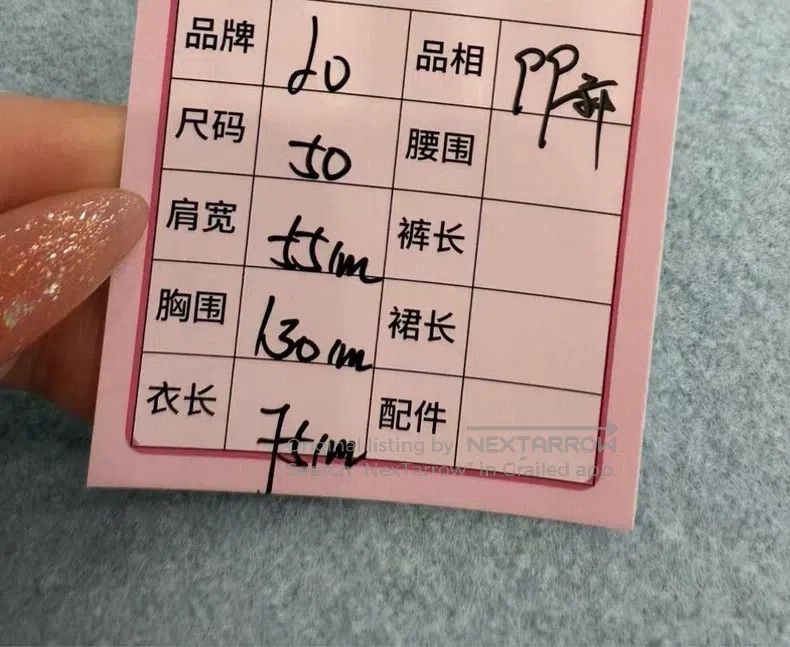 品牌 20 品相 PP新
尺码 50 腰围
肩宽 55cm 裤长
胸围 130cm 裙长
衣长 75cm 配件
Original listing by NEXTARROW
Search "NexTarrow" in Grailed app.